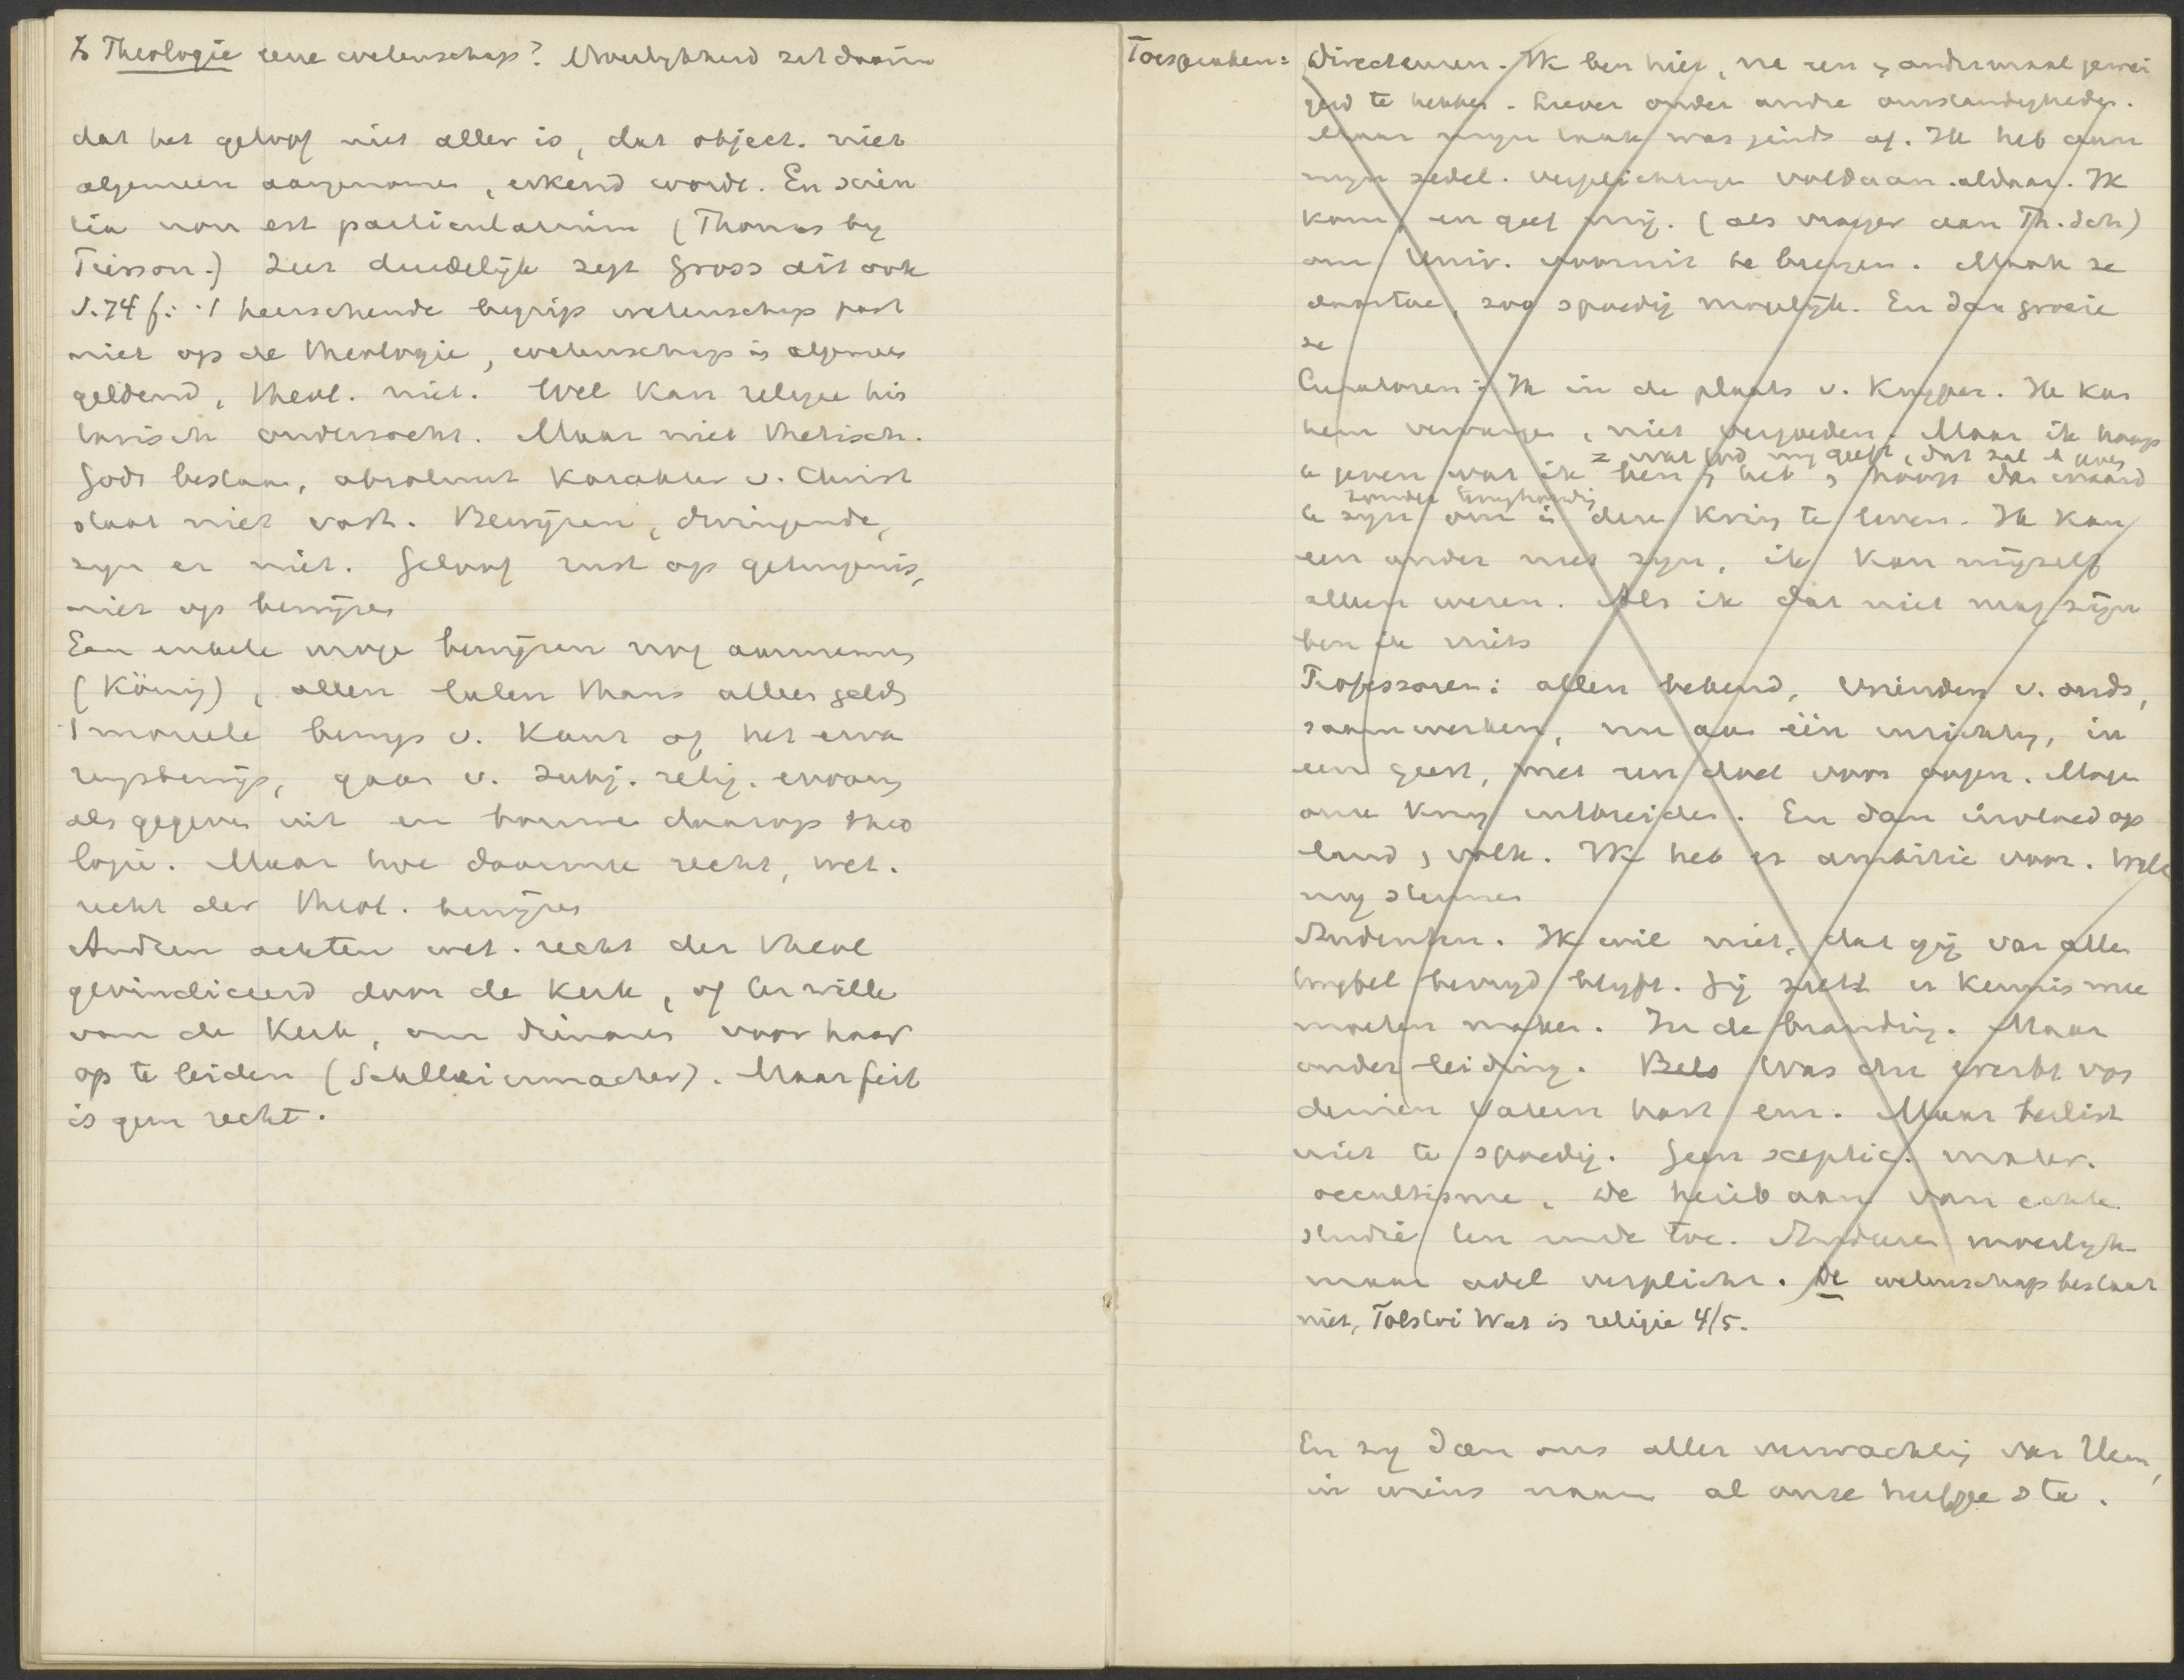 Is Theologie eene wetenschap? Moeilykheid zit daarin
dat het geloof niet aller is, dat object. niet
algemeen aangenomen, erkend wordt. En scien
tia non est particularium (Thomas by
Frisson.) Zeer duidelijk zegt Gross dit ook
S. 74 f: 't heerschende begrip wetenschap past
niet op de theologie, wetenschap is algemeen
geldend, theol. niet. Wel kan religie his
torisch onderzocht. Maar niet thetisch.
Gods bestaan, absoluut karakter v. Christ
staat niet vast. Bewijzen, dwingende,
zyn er niet. Geloof rust op getuigenis,
niet op bewijzen
Een enkele moge bewijzen nog aannemen
(König), allen laten thans alleen gelden
't moreele bewys v. Kant of het erva
ringsbewijs, gaan v. subj. relig. ervaring
als gegeven uit en bouwen daarop theo
logie. Maar hoe daarmee recht, wet.
recht der theol. bewijzen
Andren achten wet. recht der theol
gevindiceerd door de kerk, of ter wille
van de kerk, om dienaren voor haar
op te leiden (Schleiermacher). Maar feit
is geen recht.
Toespraken: Directeuren. Ik ben hier, na een en andermaal gewei
gerd te hebben. Liever onder andre omstandigheden.
Maar mijn taak was ginds af. Ik heb aan
mijn zedel. verplichtingen voldaan aldaar. Ik
kom, en geef mij. (als vroeger aan Th. Sch)
om Univ. vooruit te brengen. Maak ze
daartoe, zoo spoedig mogelijk. En dan groeie
ze
Curatoren: Ik in de plaats v. Kuyper. Ik kan
hem vervangen, niet vergoeden. Maar ik hoop
= wat God my geeft, dat zal ik geven
te geven wat ik ben en heb en hoop dan waard
zonder
te zijn om in dezen kring te leven. Ik kan
een ander niet zyn, ik kan mijzelf
alleen wezen. Als ik dat niet mag zijn
ben ik niets
Professoren: allen bekend, vrienden v. ouds,
saamwerken, nu aan één inrichting, in
een geest, met een doel voor oogen. Moge
onze kring uitbreiden. En dan invloed op
land en volk. Ik heb er ambitie voor. Wilt
my steunen
Studenten. Ik wil niet, dat gij van alle
twyfel bevryd blyft. Gij zult er kennis mee
moeten maken. In de branding. Maar
onder leiding. Was du ererbt von
deinen Vätern hast enz. Maar beslist
niet te spoedig. Geen sceptic. mater.
occultisme, de heiligdom van echte
studie ten einde toe. Studeeren moeilyk
maar adel verplicht. De wetenschap bestaat
niet, Tolstoi Wat is religie 4/5.
En zy dan ons aller verwachting van Hem,
in wiens naam al onze hulpe sta.